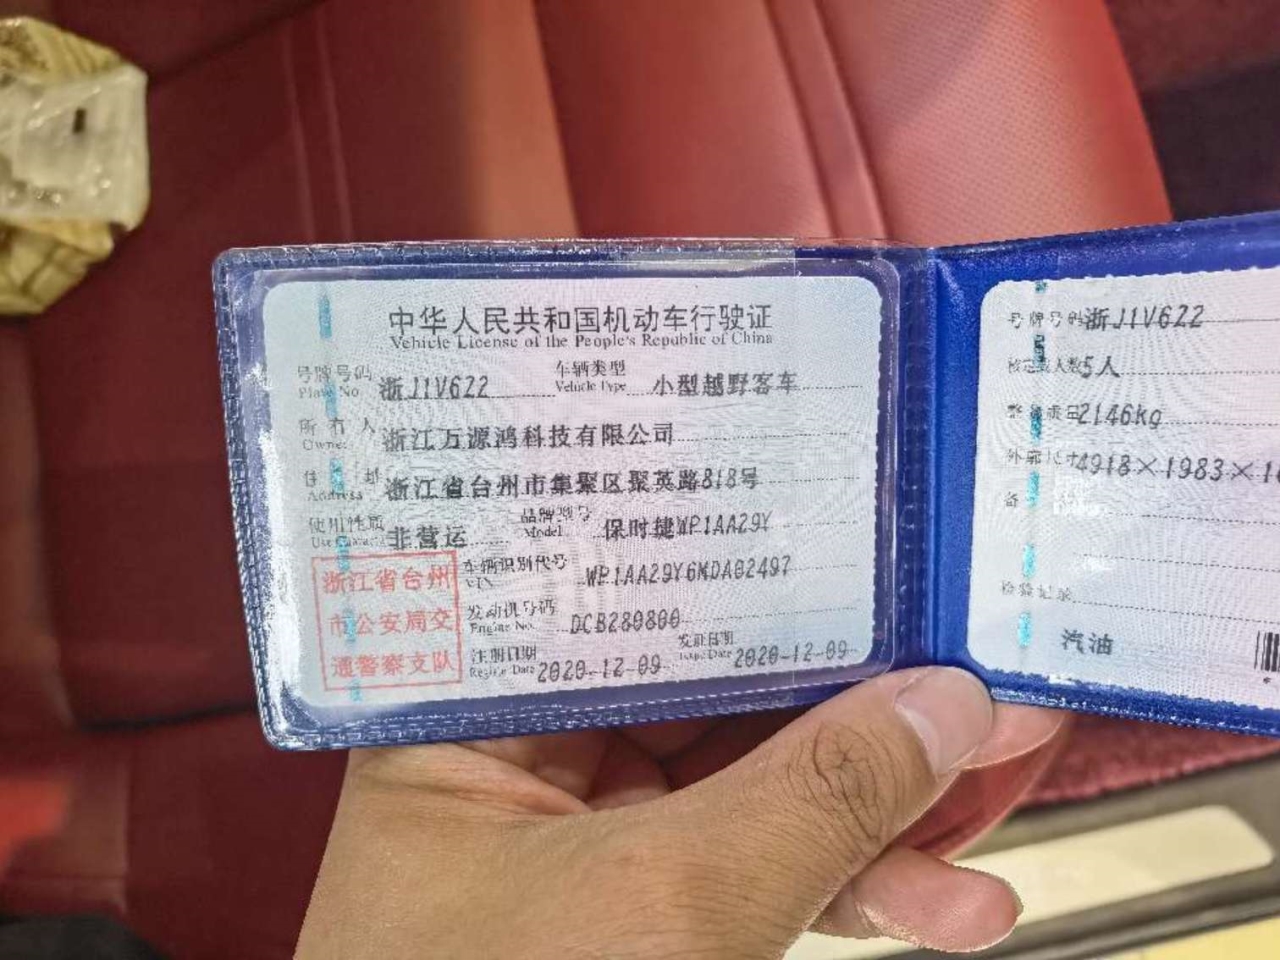 中华人民共和国机动车行驶证
Vehicle License of the People's Republic of China
号牌号码 浙J1V622 车辆类型 小型越野客车
Plate No. Vehicle Type
所有人 浙江万源鸿科技有限公司
Owner
住址 浙江省台州市集聚区聚英路818号
Address
使用性质 非营运 品牌型号 保时捷WP1AA29Y
Use Character Model
车辆识别代号 WP1AA29Y6MDA02497
VIN
发动机号码 DCB280800
Engine No.
注册日期 2020-12-09 发证日期 2020-12-09
Register Date Issue Date
浙江省台州
市公安局交
通警察支队
号牌号码 浙J1V622
核定载人数 5人
整备质量 2146kg
外廓尺寸 4918×1983×16
备
检验记录
汽油